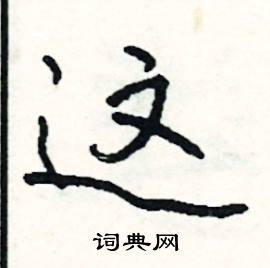 这
词典网